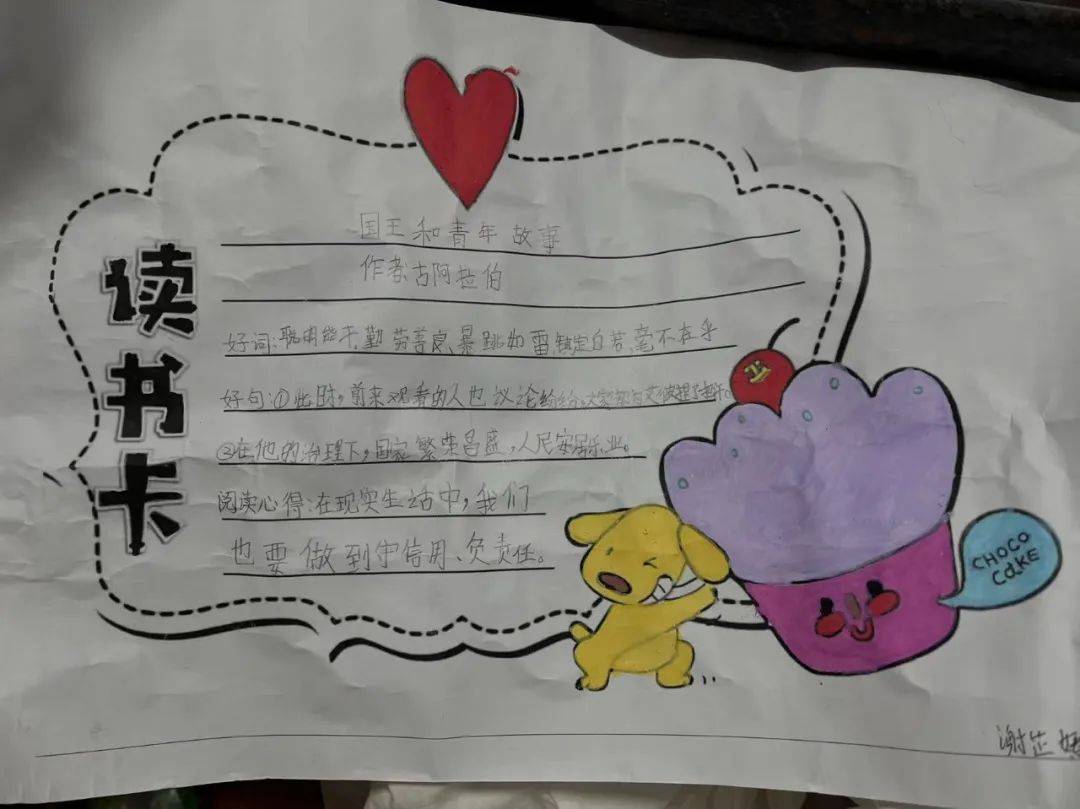 读书卡
国王和青年故事
作者:古阿拉伯
好词:聪明能干、勤劳善良、暴跳如雷、镇定自若、毫不在乎
好句:①此时,前来观看的人也议论纷纷。大家都为艾
②在他的治理下,国家繁荣昌盛,人民安居乐业。
阅读心得:在现实生活中,我们
也要做到守信用、负责任。
CHOCO
CaKE
谢芷